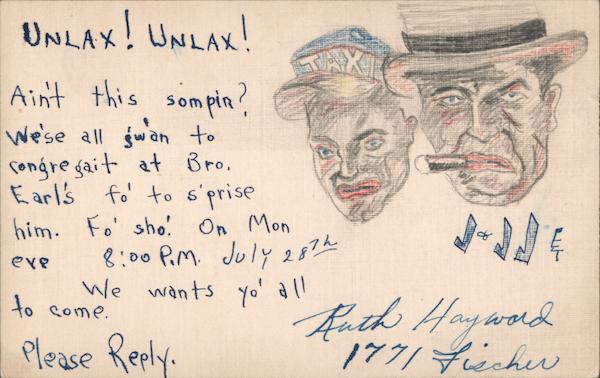 UNLAX! UNLAX!
TAXI
Ain't this sompin?
We'se all gw'an to
congregait at Bro.
Earl's fo' to s'prise
him. Fo' sho'. On Mon
eve 8:00 P.M. July 28th
We wants yo' all
to come.
Please Reply.
Ruth Hayward
1771 Fischer